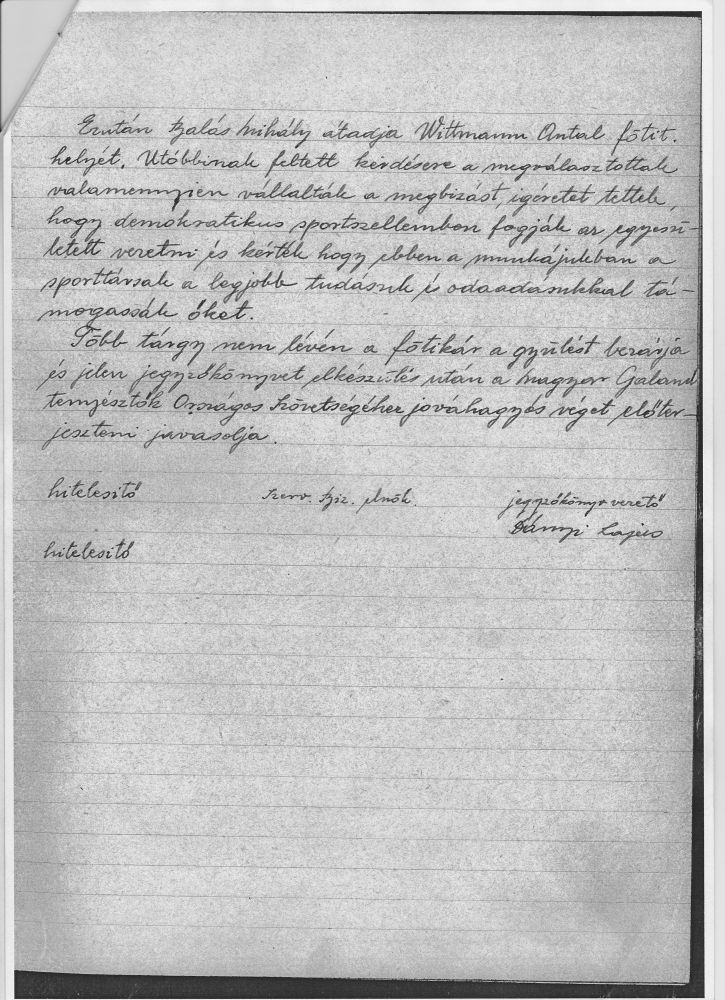 Ezután Balás Mihály átadja Wittmann Antal főtit.
helyét. Utóbbinak feltett kérdésere a megválasztottak
valamennyien vállalták a megbizást, igéretet tettek,
hogy demokratikus sportszellemben fogják az egyesü-
letett vezetni és kérték hogy ebben a munkájukban a
sporttársak a legjobb tudásuk és odaadásukkal tá-
mogassák őket.
Több tárgy nem lévén a főtikár a gyűlést bezárja
és jelen jegyzőkönyvet elkészülés után a Magyar Galamb
tenyésztők Országos Szövetségéhez jóváhagyás véget előter-
jeszteni javasolja.
hitelesitő Szerv. Biz. elnök. jegyzőkönyv vezető
Dányi Lajos
hitelesitő